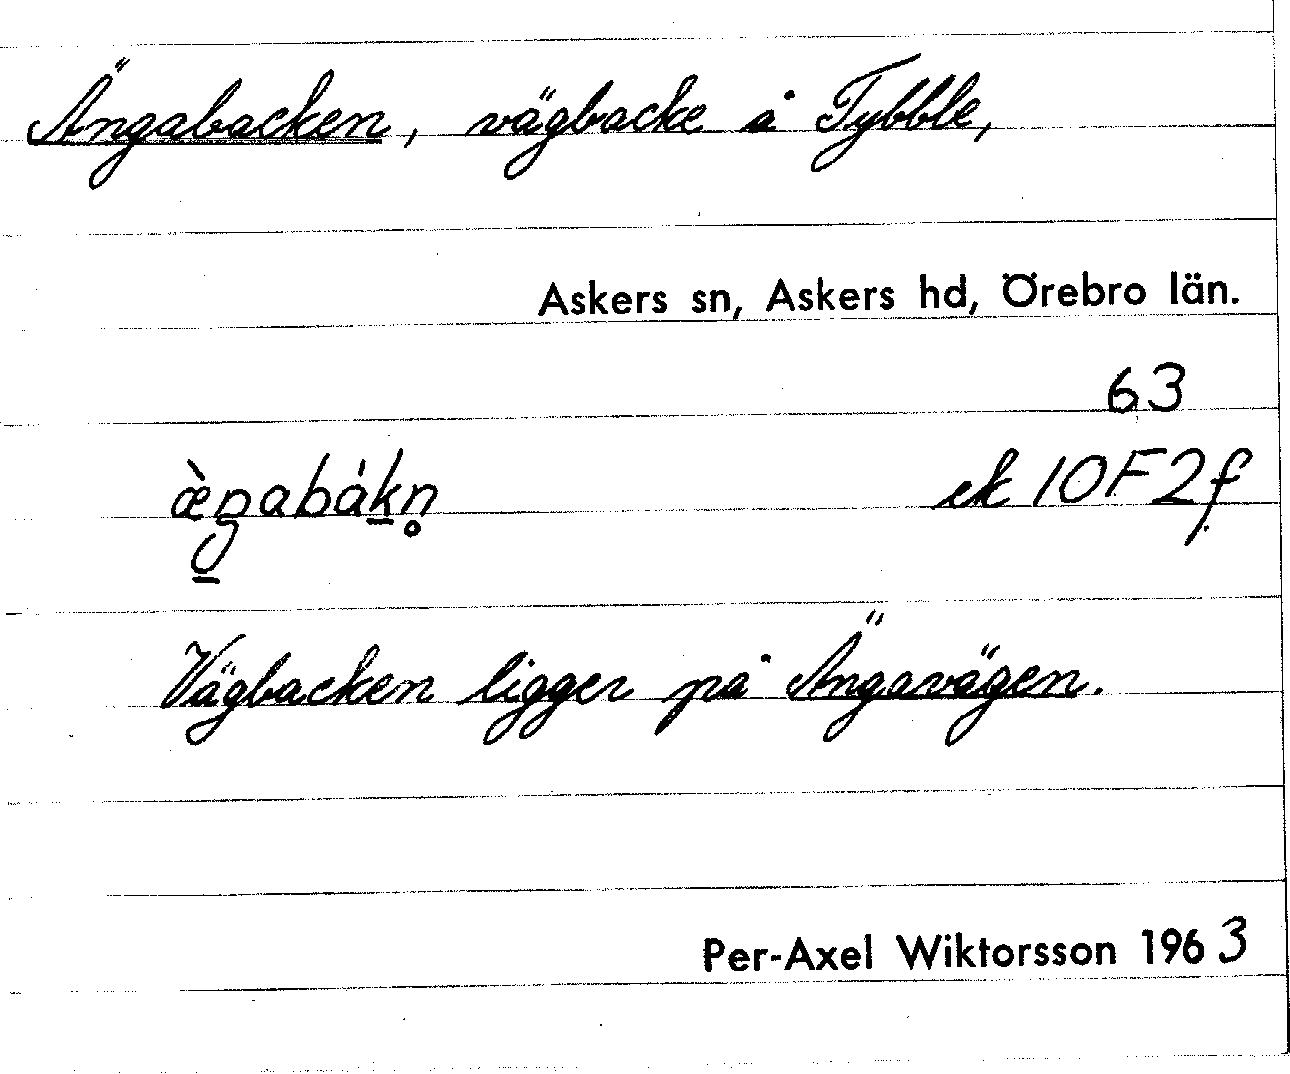 Ängabacken, vägbacke å Tybble,
Askers sn, Askers hd, Örebro län.
63
æ̀ŋabák̠n̥ ek 10F2f
Vägbacken ligger på Ängavägen.
Per-Axel Wiktorsson 1963